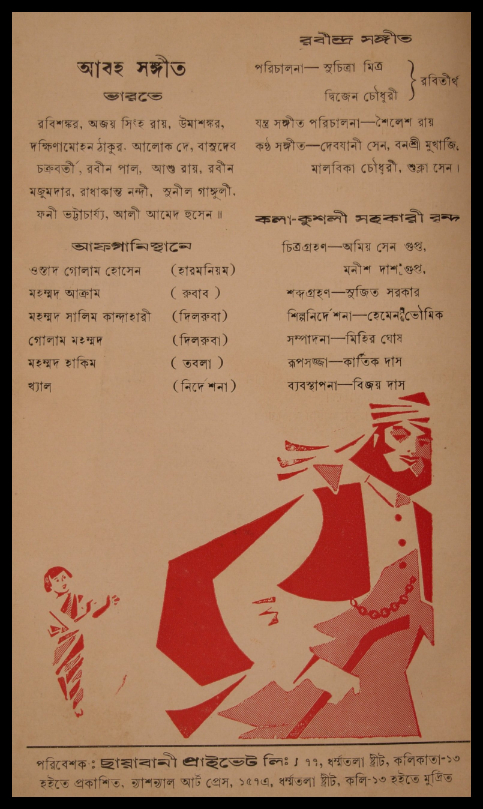 আবহ সঙ্গীত
ভারতে
রবিশঙ্কর, অজয় সিংহ রায়, উমাশঙ্কর,
দক্ষিণামোহন ঠাকুর, আলোক দে, বাসুদেব
চক্রবর্তী, রবীন পাল, আশু রায়, রবীন
মজুমদার, রাধাকান্ত নন্দী, সুনীল গাঙ্গুলী,
ফনী ভট্টাচার্য্য, আলী আমেদ হুসেন॥
আফগানিস্থানে
ওস্তাদ গোলাম হোসেন (হারমনিয়ম)
মহম্মদ আক্রাম (রুবাব)
মহম্মদ সালিম কান্দাহারী (দিলরুবা)
গোলাম মহম্মদ (দিলরুবা)
মহম্মদ হাকিম (তবলা)
খ্যাল (নির্দেশনা)
রবীন্দ্র সঙ্গীত
পরিচালনা—সুচিত্রা মিত্র
রবিতীর্থ
দ্বিজেন চৌধুরী
যন্ত্র সঙ্গীত পরিচালনা—শৈলেশ রায়
কণ্ঠ সঙ্গীত—দেবযানী সেন, বনশ্রী মুখার্জি,
মালবিকা চৌধুরী, শুক্লা সেন।
কলা-কুশলী সহকারী বৃন্দ
চিত্রগ্রহণ—অমিয় সেন গুপ্ত,
মনীশ দাশগুপ্ত,
শব্দগ্রহণ—সুজিত সরকার
শিল্পনির্দেশনা—হেমেন ভৌমিক
সম্পাদনা—মিহির ঘোষ
রূপসজ্জা—কার্তিক দাস
ব্যবস্থাপনা—বিজয় দাস
পরিবেশক : ছায়াবানী প্রাইভেট লিঃ। ৭৭, ধর্ম্মতলা ষ্ট্রীট, কলিকাতা-১৩
হইতে প্রকাশিত, ন্যাশন্যাল আর্ট প্রেস, ১৫৭এ, ধর্ম্মতলা ষ্ট্রীট, কলি-১৩ হইতে মুদ্রিত